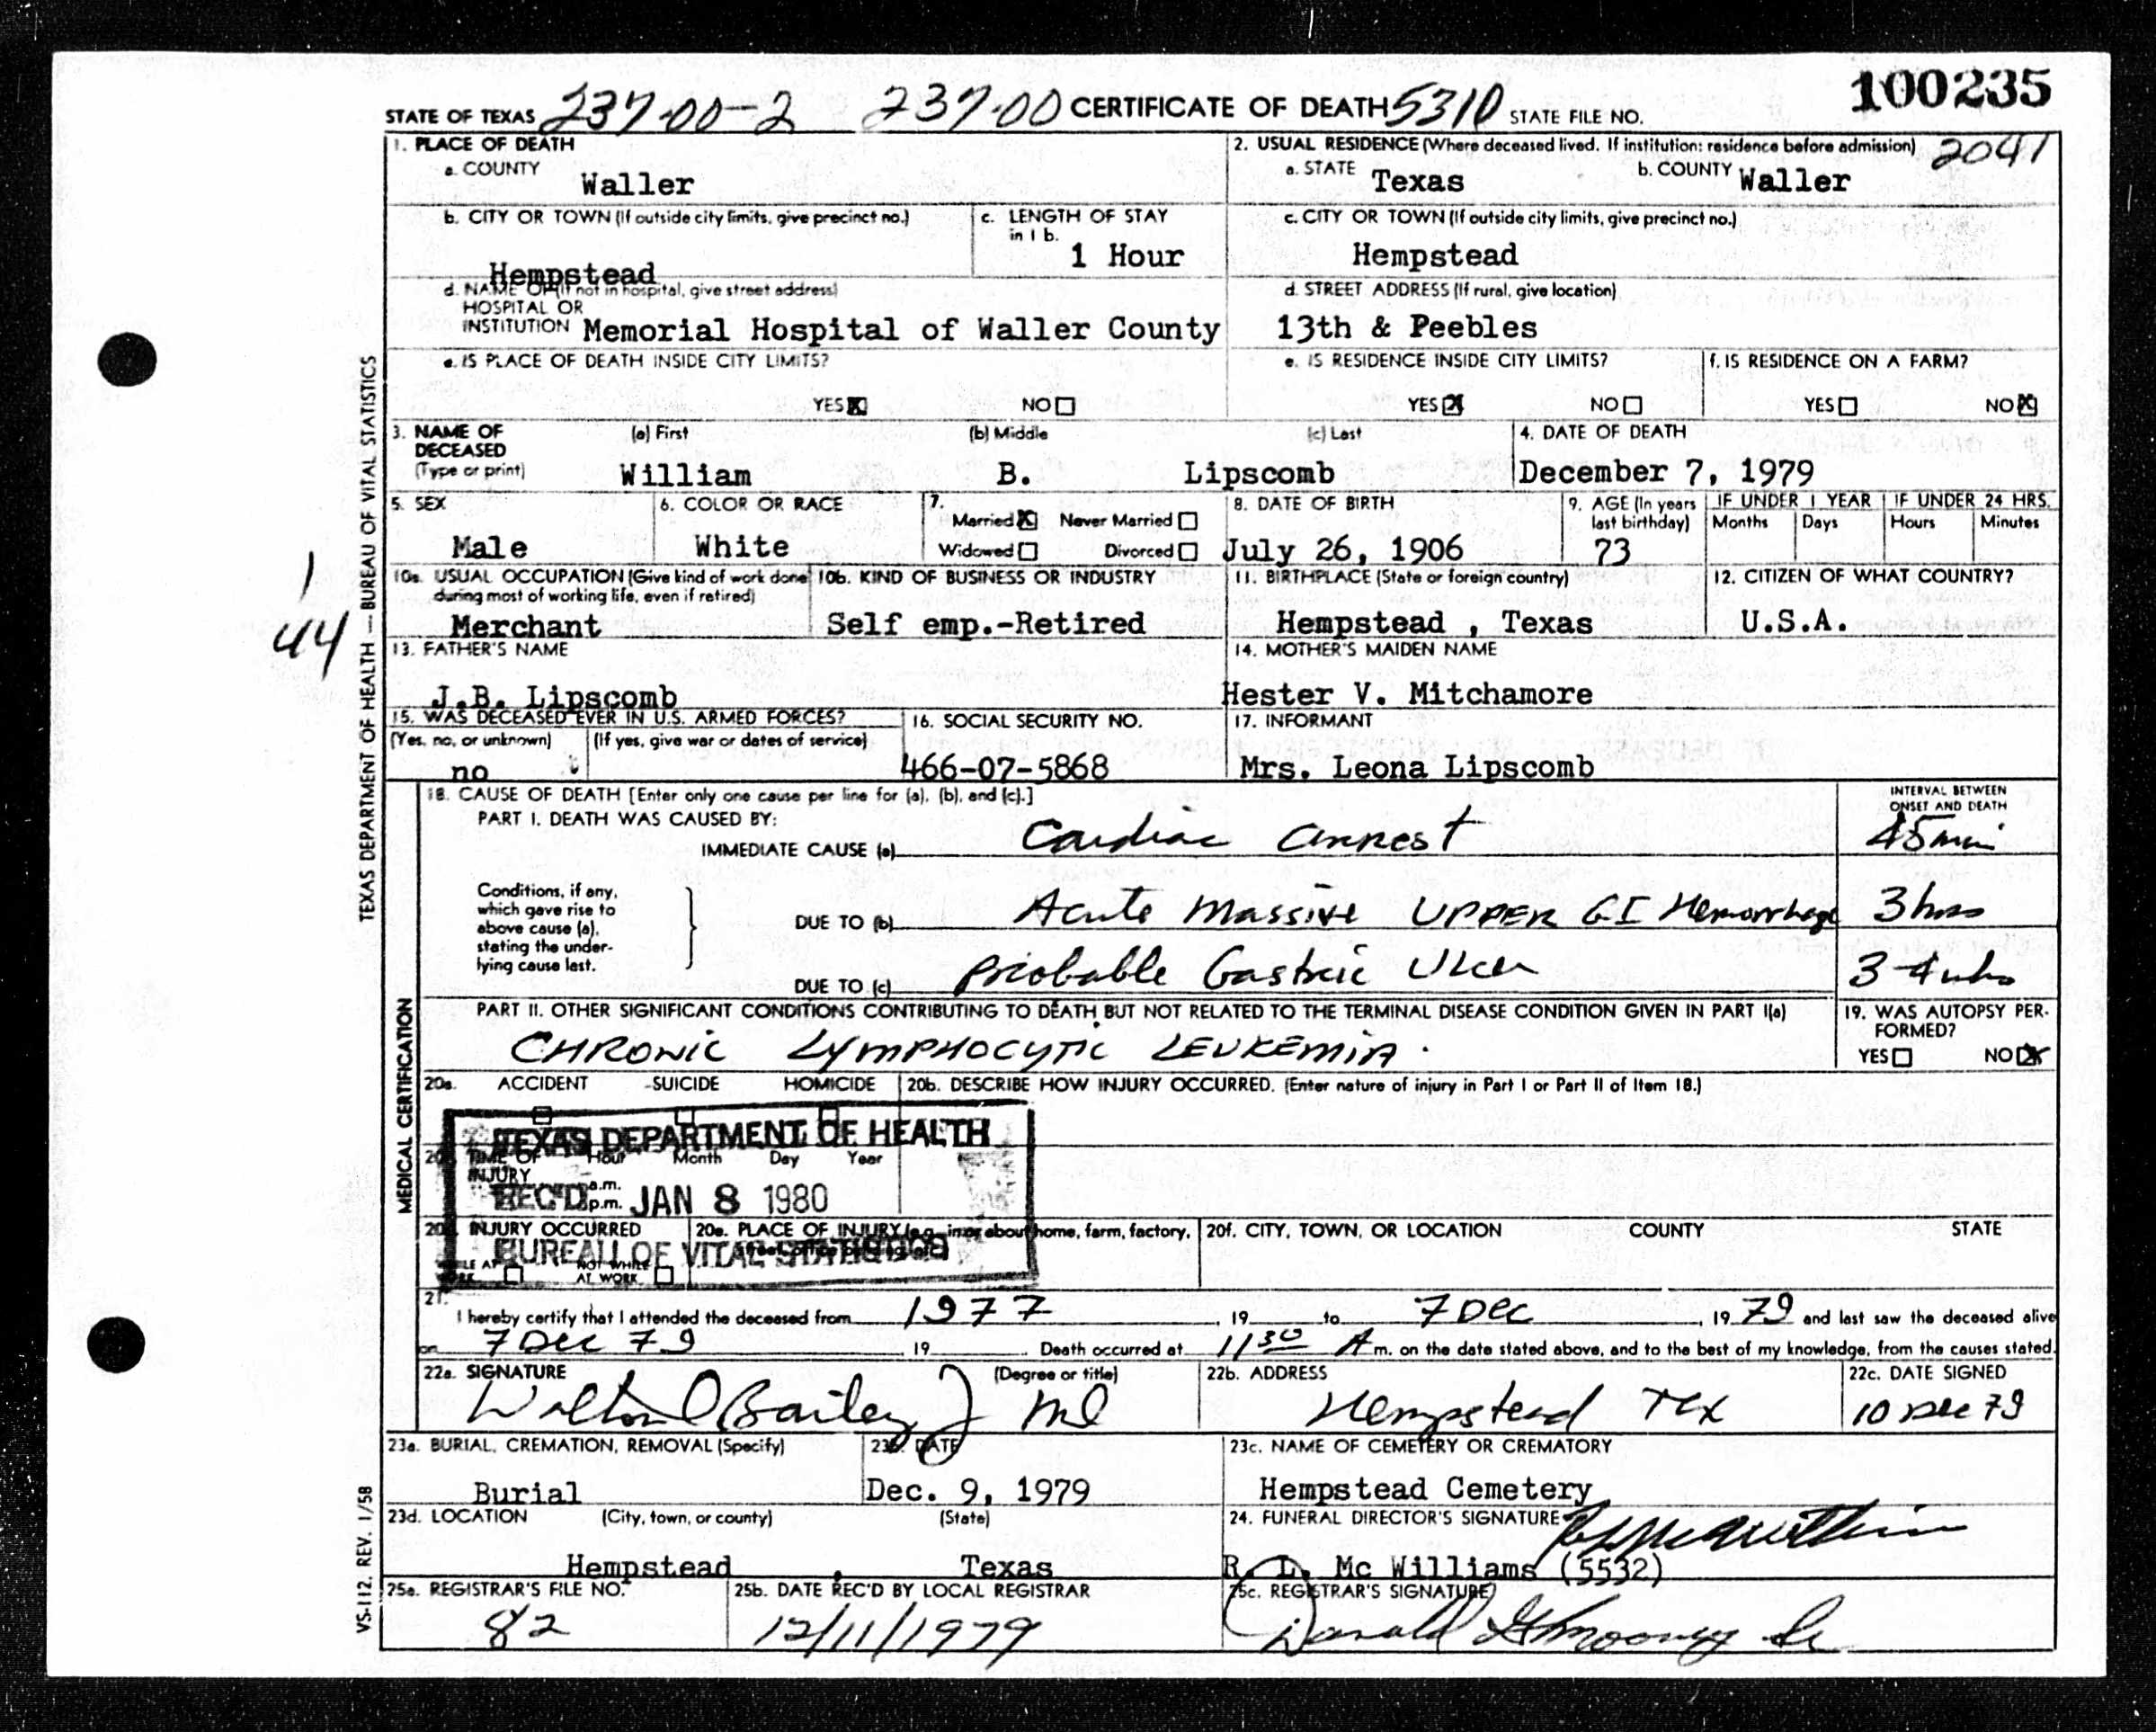 100235
STATE OF TEXAS 237-00-2 237-00 CERTIFICATE OF DEATH 5310 STATE FILE NO.
1. PLACE OF DEATH
a. COUNTY
Waller
2. USUAL RESIDENCE (Where deceased lived. If institution: residence before admission) 2041
a. STATE Texas b. COUNTY Waller
b. CITY OR TOWN (If outside city limits, give precinct no.)
Hempstead
c. LENGTH OF STAY
in 1 b.
1 Hour
c. CITY OR TOWN (If outside city limits, give precinct no.)
Hempstead
d. NAME OF (If not in hospital, give street address)
HOSPITAL OR
INSTITUTION Memorial Hospital of Waller County
d. STREET ADDRESS (If rural, give location)
13th & Peebles
e. IS PLACE OF DEATH INSIDE CITY LIMITS?
YES X NO
e. IS RESIDENCE INSIDE CITY LIMITS?
YES X NO
f. IS RESIDENCE ON A FARM?
YES NO X
3. NAME OF
DECEASED
(Type or print)
(a) First (b) Middle (c) Last
William B. Lipscomb
4. DATE OF DEATH
December 7, 1979
5. SEX
Male
6. COLOR OR RACE
White
7.
Married X Never Married
Widowed Divorced
8. DATE OF BIRTH
July 26, 1906
9. AGE (In years
last birthday)
73
IF UNDER 1 YEAR
Months Days
IF UNDER 24 HRS.
Hours Minutes
10a. USUAL OCCUPATION (Give kind of work done
during most of working life, even if retired)
Merchant
10b. KIND OF BUSINESS OR INDUSTRY
Self emp.-Retired
11. BIRTHPLACE (State or foreign country)
Hempstead , Texas
12. CITIZEN OF WHAT COUNTRY?
U.S.A.
13. FATHER'S NAME
J.B. Lipscomb
14. MOTHER'S MAIDEN NAME
Hester V. Mitchamore
15. WAS DECEASED EVER IN U.S. ARMED FORCES?
(Yes, no, or unknown) (If yes, give war or dates of service)
no
16. SOCIAL SECURITY NO.
466-07-5868
17. INFORMANT
Mrs. Leona Lipscomb
18. CAUSE OF DEATH [Enter only one cause per line for (a), (b), and (c).]
INTERVAL BETWEEN
ONSET AND DEATH
PART I. DEATH WAS CAUSED BY:
IMMEDIATE CAUSE (a) Cardiac arrest 45 min
Conditions, if any,
which gave rise to
above cause (a),
stating the under-
lying cause last.
DUE TO (b) Acute Massive UPPER GI Hemorrhage 3 hrs
DUE TO (c) Probable Gastric Ulcer 3-4 wks
PART II. OTHER SIGNIFICANT CONDITIONS CONTRIBUTING TO DEATH BUT NOT RELATED TO THE TERMINAL DISEASE CONDITION GIVEN IN PART I(a)
CHRONIC LYMPHOCYTIC LEUKEMIA.
19. WAS AUTOPSY PER-
FORMED?
YES NO X
20a. ACCIDENT SUICIDE HOMICIDE
20b. DESCRIBE HOW INJURY OCCURRED. (Enter nature of injury in Part I or Part II of Item 18.)
TEXAS DEPARTMENT OF HEALTH
TIME OF Hour Month Day Year
INJURY
a.m.
p.m.
REC'D JAN 8 1980
INJURY OCCURRED
20e. PLACE OF INJURY (e.g., in or about home, farm, factory,
20f. CITY, TOWN, OR LOCATION COUNTY STATE
BUREAU OF VITAL STATISTICS
NOT WHILE
AT WORK
21.
I hereby certify that I attended the deceased from 1977, 19 to 7 Dec, 19 79 and last saw the deceased alive
on 7 Dec 79, 19 . Death occurred at 11 30 A m. on the date stated above, and to the best of my knowledge, from the causes stated.
22a. SIGNATURE (Degree or title)
Bailey MD
22b. ADDRESS
Hempstead Tex
22c. DATE SIGNED
10 Dec 79
23a. BURIAL, CREMATION, REMOVAL (Specify)
Burial
23b. DATE
Dec. 9, 1979
23c. NAME OF CEMETERY OR CREMATORY
Hempstead Cemetery
23d. LOCATION (City, town, or county) (State)
Hempstead , Texas
24. FUNERAL DIRECTOR'S SIGNATURE
R. L. Mc Williams (5532)
25a. REGISTRAR'S FILE NO.
82
25b. DATE REC'D BY LOCAL REGISTRAR
12/11/1979
25c. REGISTRAR'S SIGNATURE
Donald
TEXAS DEPARTMENT OF HEALTH — BUREAU OF VITAL STATISTICS
MEDICAL CERTIFICATION
VS-112, REV. 1/58
1
44